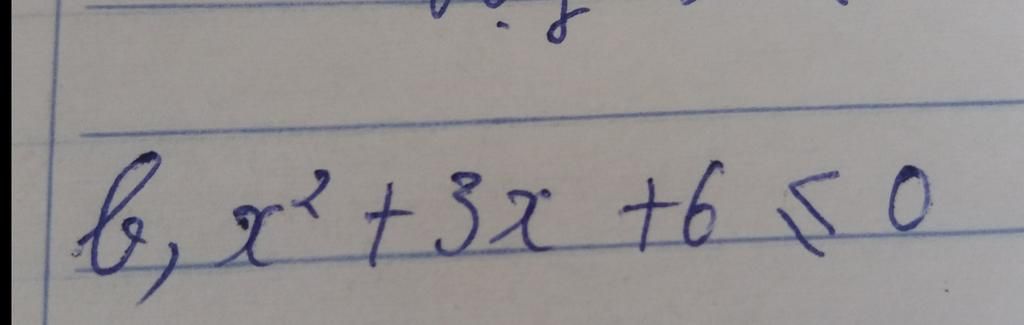 b, x² + 3x + 6 ≤ 0